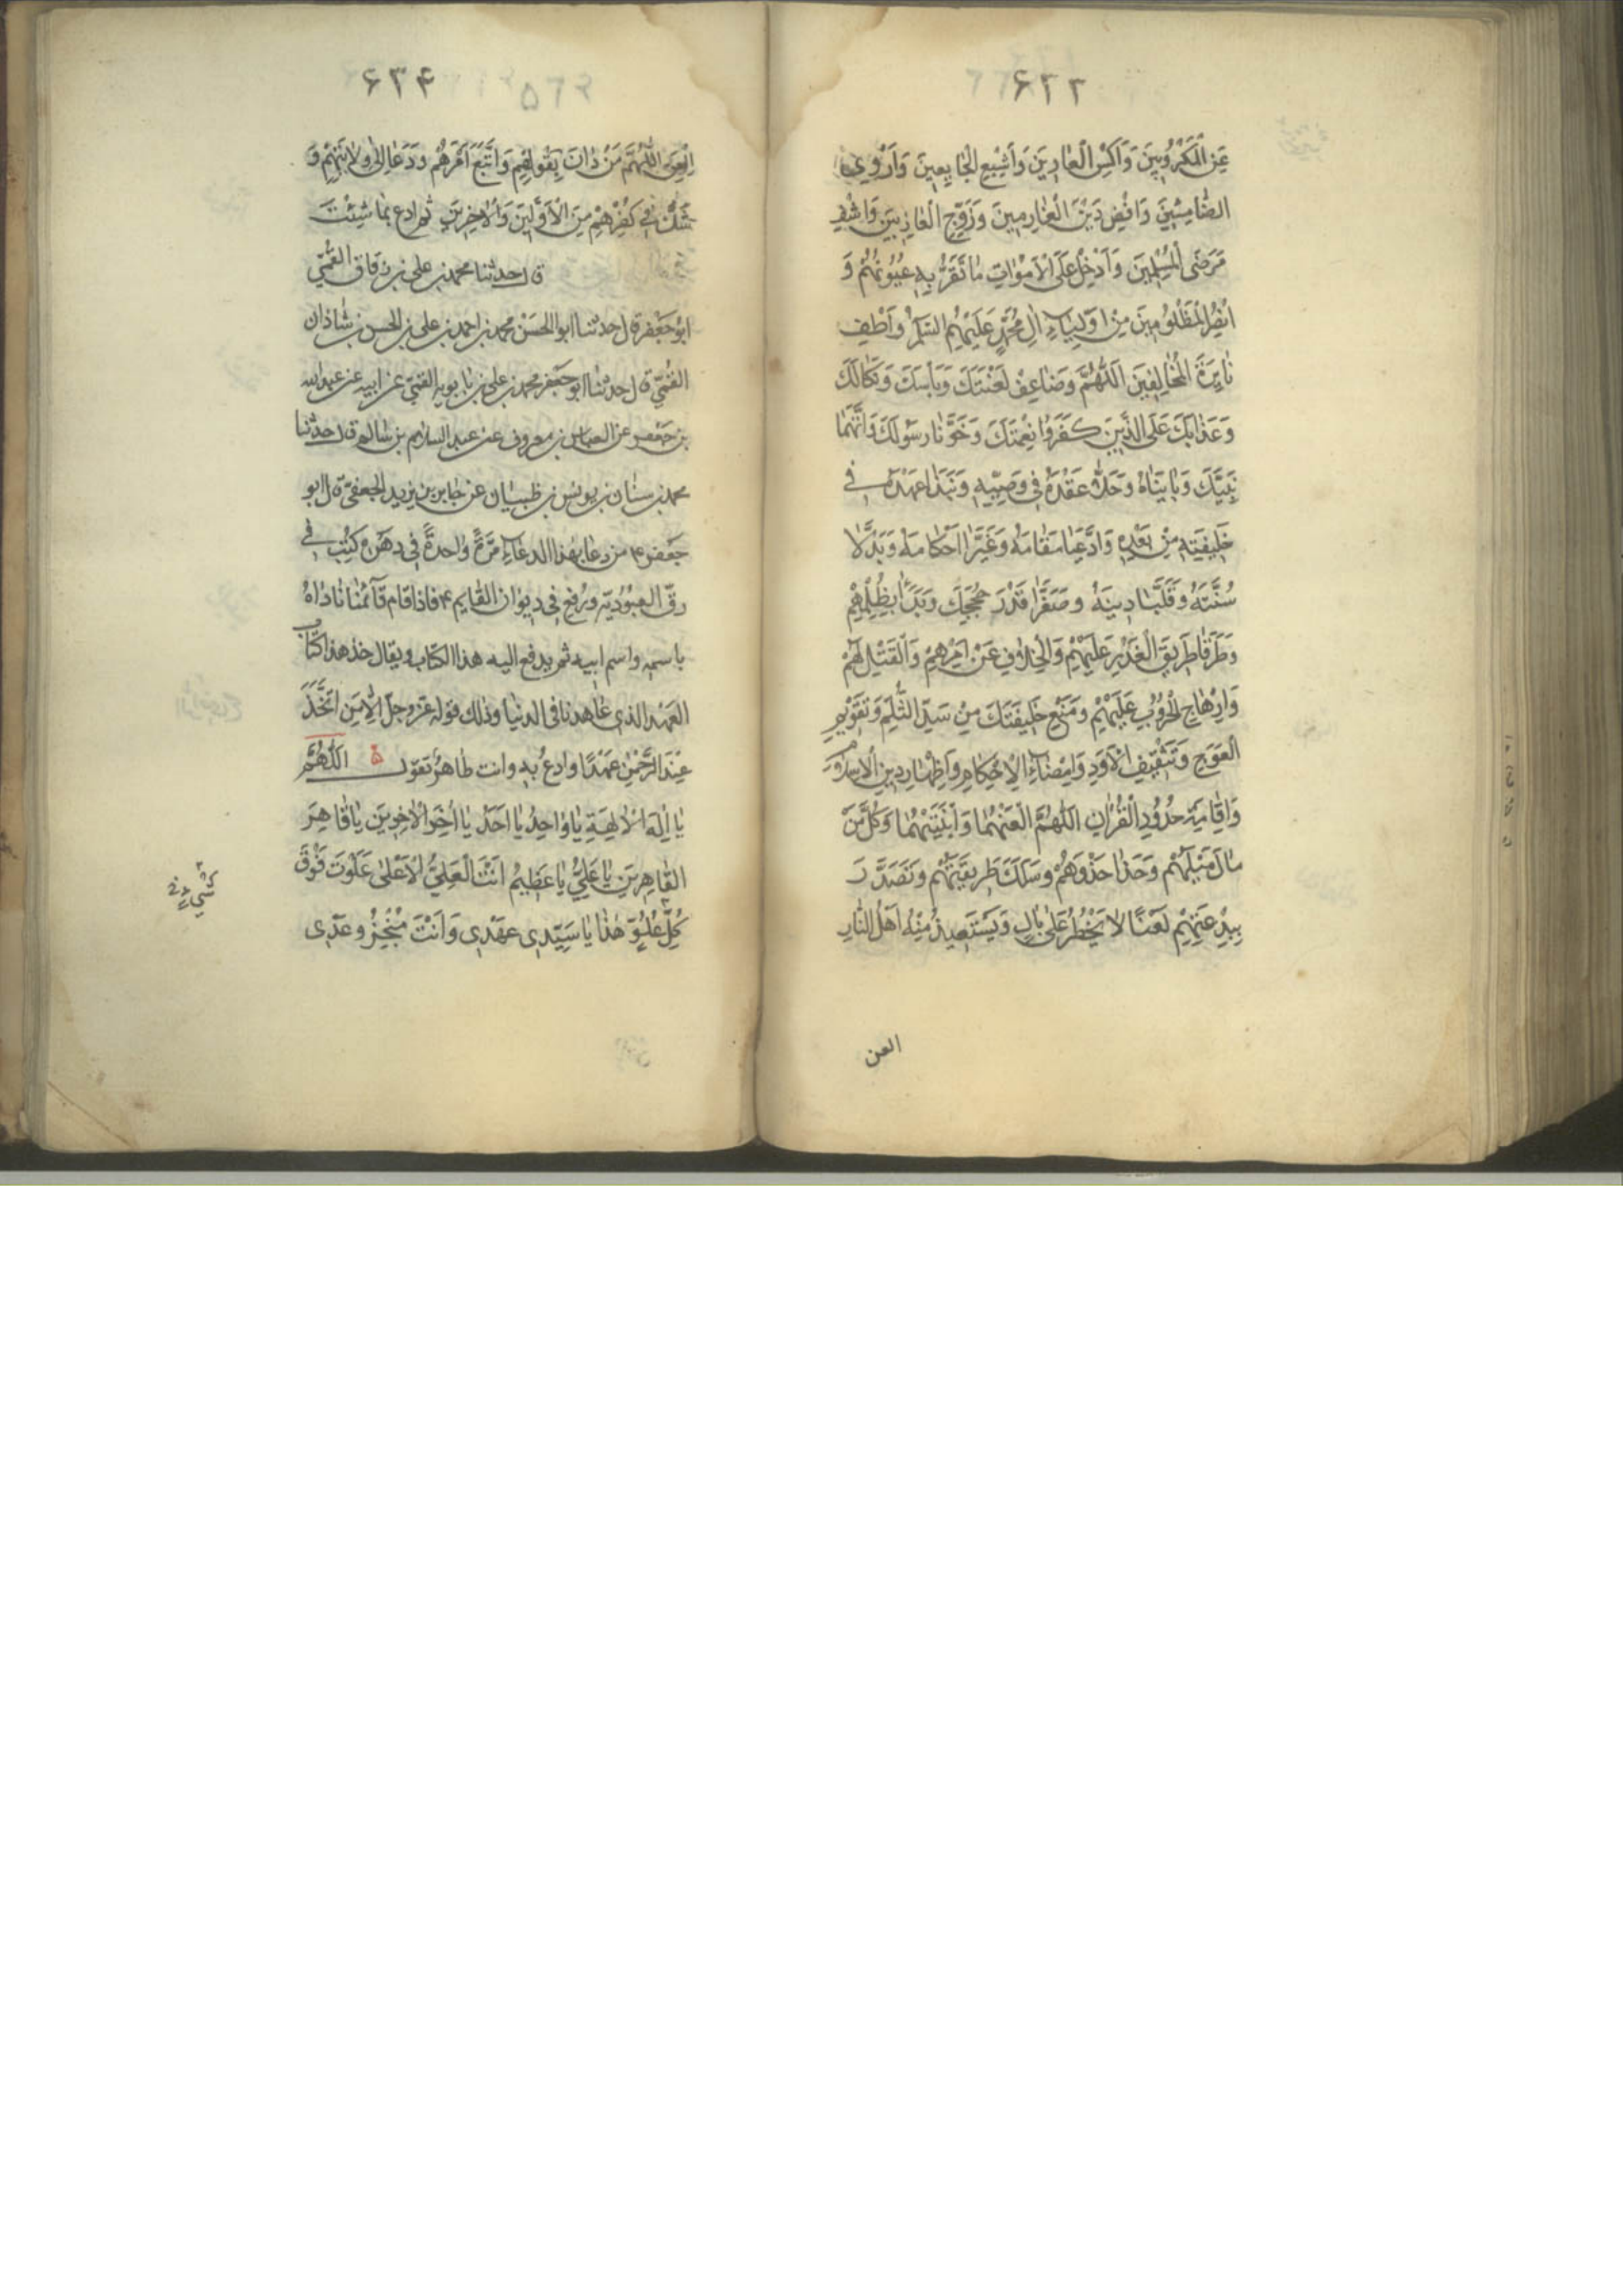 ۶۳۳
عَنِ الْمَكْرُوبِينَ وَاَكْسِ الْعَارِينَ وَاَشْبِعِ الْجَايِعِينَ وَاَرْوِي
الظَّامِئِينَ وَاقْضِ دَيْنَ الْغَارِمِينَ وَزَوِّجِ الْعَازِبِينَ وَاشْفِ
مَرْضَى الْمُسْلِمِينَ وَاَدْخِلْ عَلَى الْاَمْوَاتِ مَا تَقَرُّ بِهِ عُيُونُهُمْ وَ
انْصُرِ الْمَظْلُومِينَ مِنْ اَوْلِيَاءِ اٰلِ مُحَمَّدٍ عَلَيْهِمُ السَّلَمُ وَاَطْفِ
نَايِرَةَ الْمُخَالِفِينَ اَللّٰهُمَّ وَضَاعِفْ لَعْنَتَكَ وَبَاْسَكَ وَنَكَالَكَ
وَعَذَابَكَ عَلَى الَّذَيْنَ كَفَرُوا نِعْمَتَكَ وَخَوَّنَا رَسُولَكَ وَاتَّهَمَا
نَبِيَّكَ وَبَايَنَاهُ وَحَلَّا عَقْدَهُ فِي وَصِيِّهِ وَنَبَذَا عَهْدَهُ فِي
خَلِيفَتِهِ مِنْ بَعْدِهِ وَادَّعَيَا مَقَامَهُ وَغَيَّرَا اَحْكَامَهُ وَبَدَّلَا
سُنَّتَهُ وَقَلَّبَا دِينَهُ وَصَغَّرَا قَدْرَ حُجَجِكَ وَبَدَءَا بِظُلْمِهِمْ
وَطَرَّقَا طَرِيقَ الْغَدْرِ عَلَيْهِمْ وَالْخِلَافِ عَنْ اَمْرِهِمْ وَالْقَتْلِ لَهُمْ
وَاِرْهَاجِ الْحُرُوبِ عَلَيْهِمْ وَمَنْعِ خَلِيفَتِكَ مِنْ سَدِّ الثُّلَمِ وَتَقْوِيمِ
الْعِوَجِ وَتَثْقِيفِ الْاَوَدِ وَاِمْضَاءِ الْاَحْكَامِ وَاِظْهَارِ دِينِ الْاِسْلَامِ
وَاِقَامَةِ حُدُودِ الْقُرْاٰنِ اَللّٰهُمَّ الْعَنْهُمَا وَابْنَتَيْهِمَا وَكُلَّ مَنْ
مَالَ مَيْلَهُمْ وَحَذَا حَذْوَهُمْ وَسَلَكَ طَرِيقَتَهُمْ وَتَصَدَّرَ
بِبِدْعَتِهِمْ لَعْنًا لَا يَخْطُرُ عَلَى بَالٍ وَيَسْتَعِيذُ مِنْهُ اَهْلُ النَّارِ
العن
۶۳۴
اِلْعَنِ اللّٰهُمَّ مَنْ دَانَ بِقَوْلِهِمْ وَاتَّبَعَ اَمْرَهُمْ وَدَعَا اِلَى وِلَايَتِهِمْ وَ
شَكَّ فِي كُفْرِهِمْ مِنَ الْاَوَّلِينَ وَالْاٰخِرِينَ ثم ادع بما شئت
قال حدثنا محمد بن علي بن رقاق القُمّي
ابو جعفر قال حدثنا ابو الحسن محمد بن احمد بن علي بن الحسن بن شاذان
القُمّيّ قال حدثنا ابو جعفر محمد بن علي بن بابويه القمّي عن ابيه عن عبد الله
بن جعفر عن العباس بن معروف عن عبد السلام بن سالم قال حدثنا
محمد بن سنان بن يونس بن ظبيان عن جابر بن يزيد الجعفيّ قال ابو
جعفر ۴ من دعا بهذا الدعاء مَرّةً واحدةً في دهره كُتِبَ في
رقّ العبوديّه ورُفِع في ديوان القايم ۴ فاذا قام قآئمُنا ناداهُ
باسمه واسم ابيه ثم يدفع اليه هذا الكتاب ويقال خذ هذا كتاب
العهد الذي عاهدنا في الدنيا وذلك قوله عزّ وجلّ اِلَّا مَنِ اتَّخَذَ
عِنْدَ الرَّحْمٰنِ عَهْدًا وادعُ به وانت طاهرٌ تقول اَللّٰهُمَّ
يَا اِلٰهَ الْاٰلِهَةِ يَا وَاحِدُ يَا اَحَدُ يَا اٰخِرَ الْاٰخِرِينَ يَا قَاهِرَ
الْقَاهِرِينَ يَا عَلِيُّ يَا عَظِيمُ اَنْتَ الْعَلِيُّ الْاَعْلَى عَلَوْتَ فَوْقَ
كُلِّ عُلُوٍّ هَذَا يَا سَيِّدِي عَهْدِي وَاَنْتَ مُنْجِزُ وَعْدِي